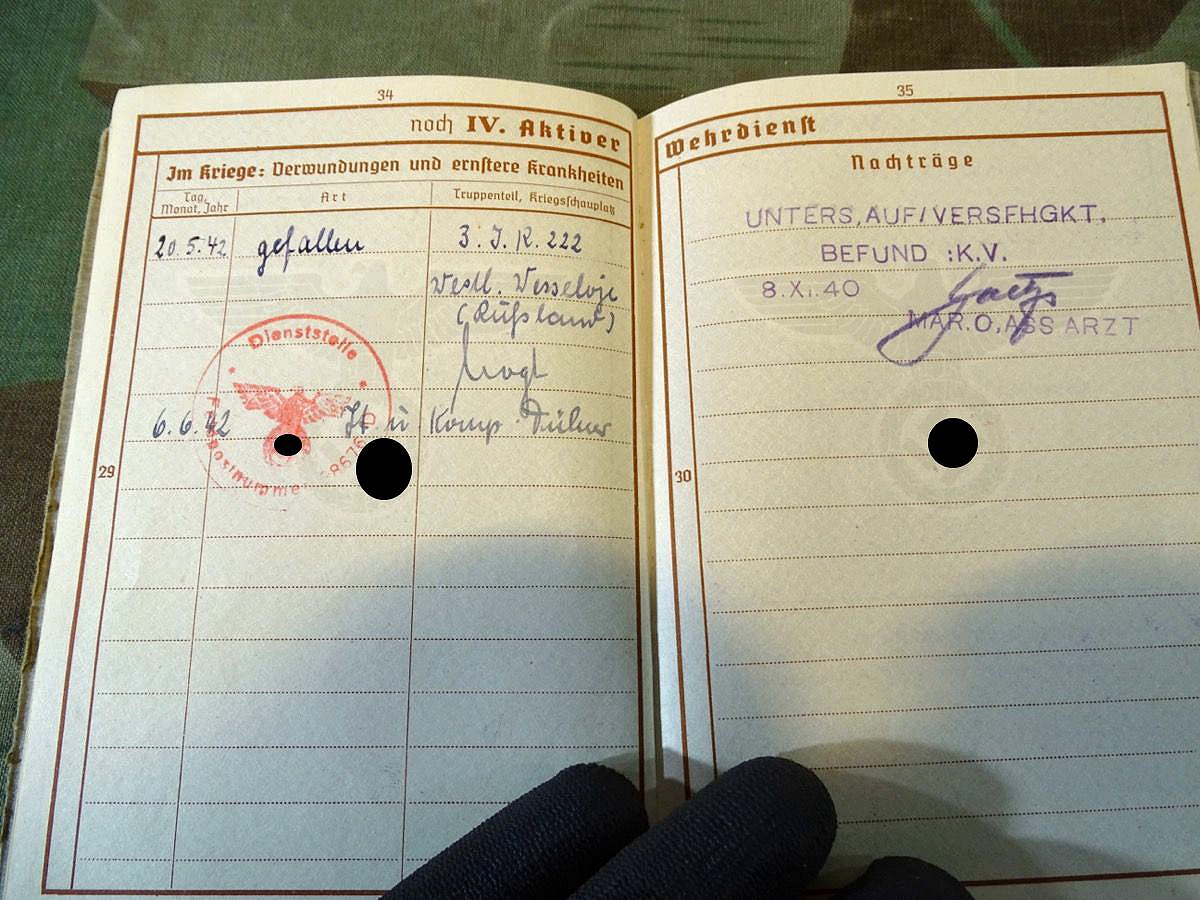 34
noch IV. Aktiver
Im Kriege: Verwundungen und ernstere Krankheiten
Tag, Monat, Jahr
Art
Truppenteil, Kriegsschauplatz
20.5.42 gefallen 3. J. R. 222
westl. Wesseloje
(Rußland)
Dienststelle
Feldpostnummer
6.6.42 Lt. u Komp. Führer
29
35
Wehrdienst
Nachträge
UNTERS.AUF/VERS.FHGKT.
BEFUND :K.V.
8.XI.40
MAR.O.ASS ARZT
30